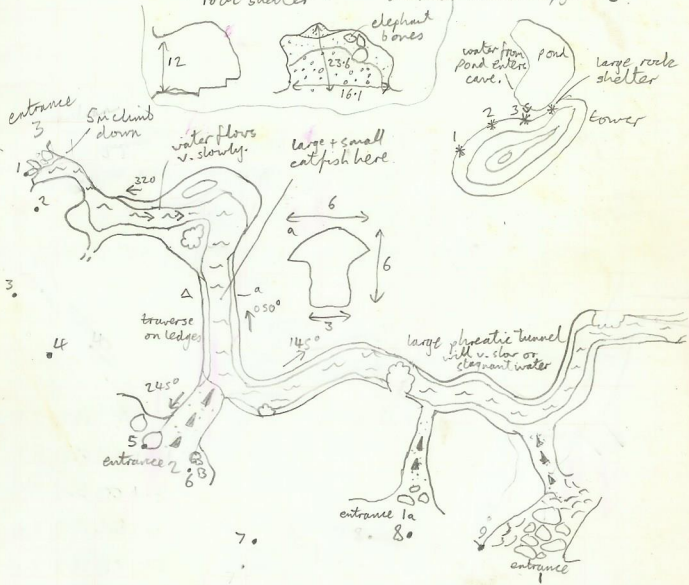 rock shelter
elephant
bones
12
23.6
16.1
water from
pond enters
cave.
pond
large rock
shelter
tower
1
2
3
entrance
3
5m climb
down
water flows
v. slowly.
large + small
catfish here
320
1
2
3
4
6
a
6
3
a
050°
traverse
on ledges
145°
large phreatic tunnel
will v. slow or
stagnant water
245°
5
entrance 2
B
6
entrance 1a
7
8
9
entrance
1